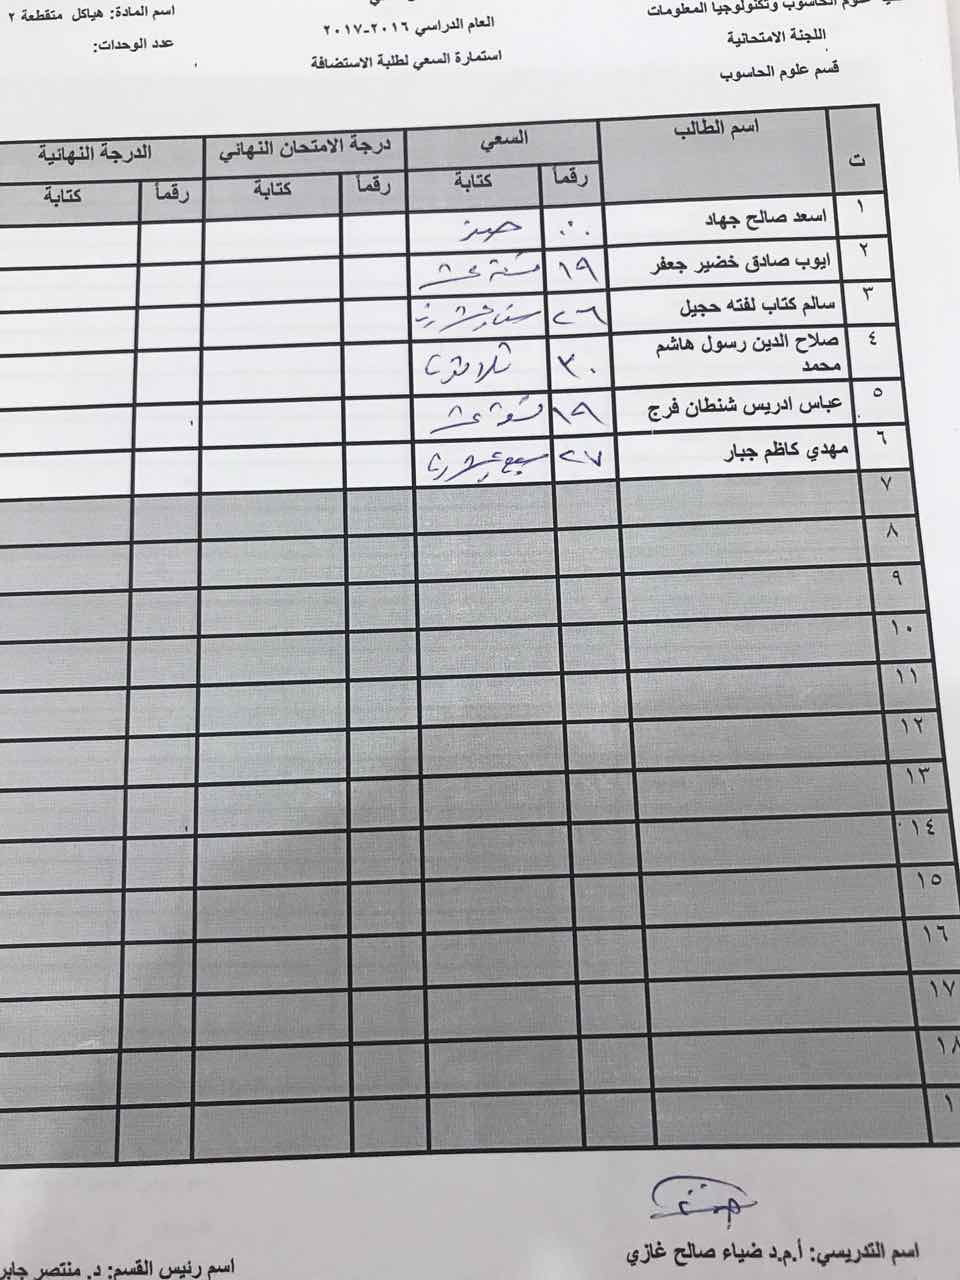 علوم الحاسوب وتكنولوجيا المعلومات
اللجنة الامتحانية
قسم علوم الحاسوب
العام الدراسي ٢٠١٦-٢٠١٧
استمارة السعي لطلبة الاستضافة
اسم المادة: هياكل متقطعة ٢
عدد الوحدات:
ت اسم الطالب السعي درجة الامتحان النهائي الدرجة النهائية
رقماً كتابة رقماً كتابة رقماً كتابة
١ اسعد صالح جهاد ٠٠ صفر
٢ ايوب صادق خضير جعفر ١٩ تسعة عشر
٣ سالم كتاب لفته حجيل ٢٦ ستة وعشرون
٤ صلاح الدين رسول هاشم
محمد ٣٠ ثلاثون
٥ عباس ادريس شنطان فرج ١٩ تسعة عشر
٦ مهدي كاظم جبار ٢٧ سبع وعشرون
٧
٨
٩
١٠
١١
١٢
١٣
١٤
١٥
١٦
١٧
١٨
١
اسم التدريسي: أ.م.د ضياء صالح غازي
اسم رئيس القسم: د. منتصر جابر